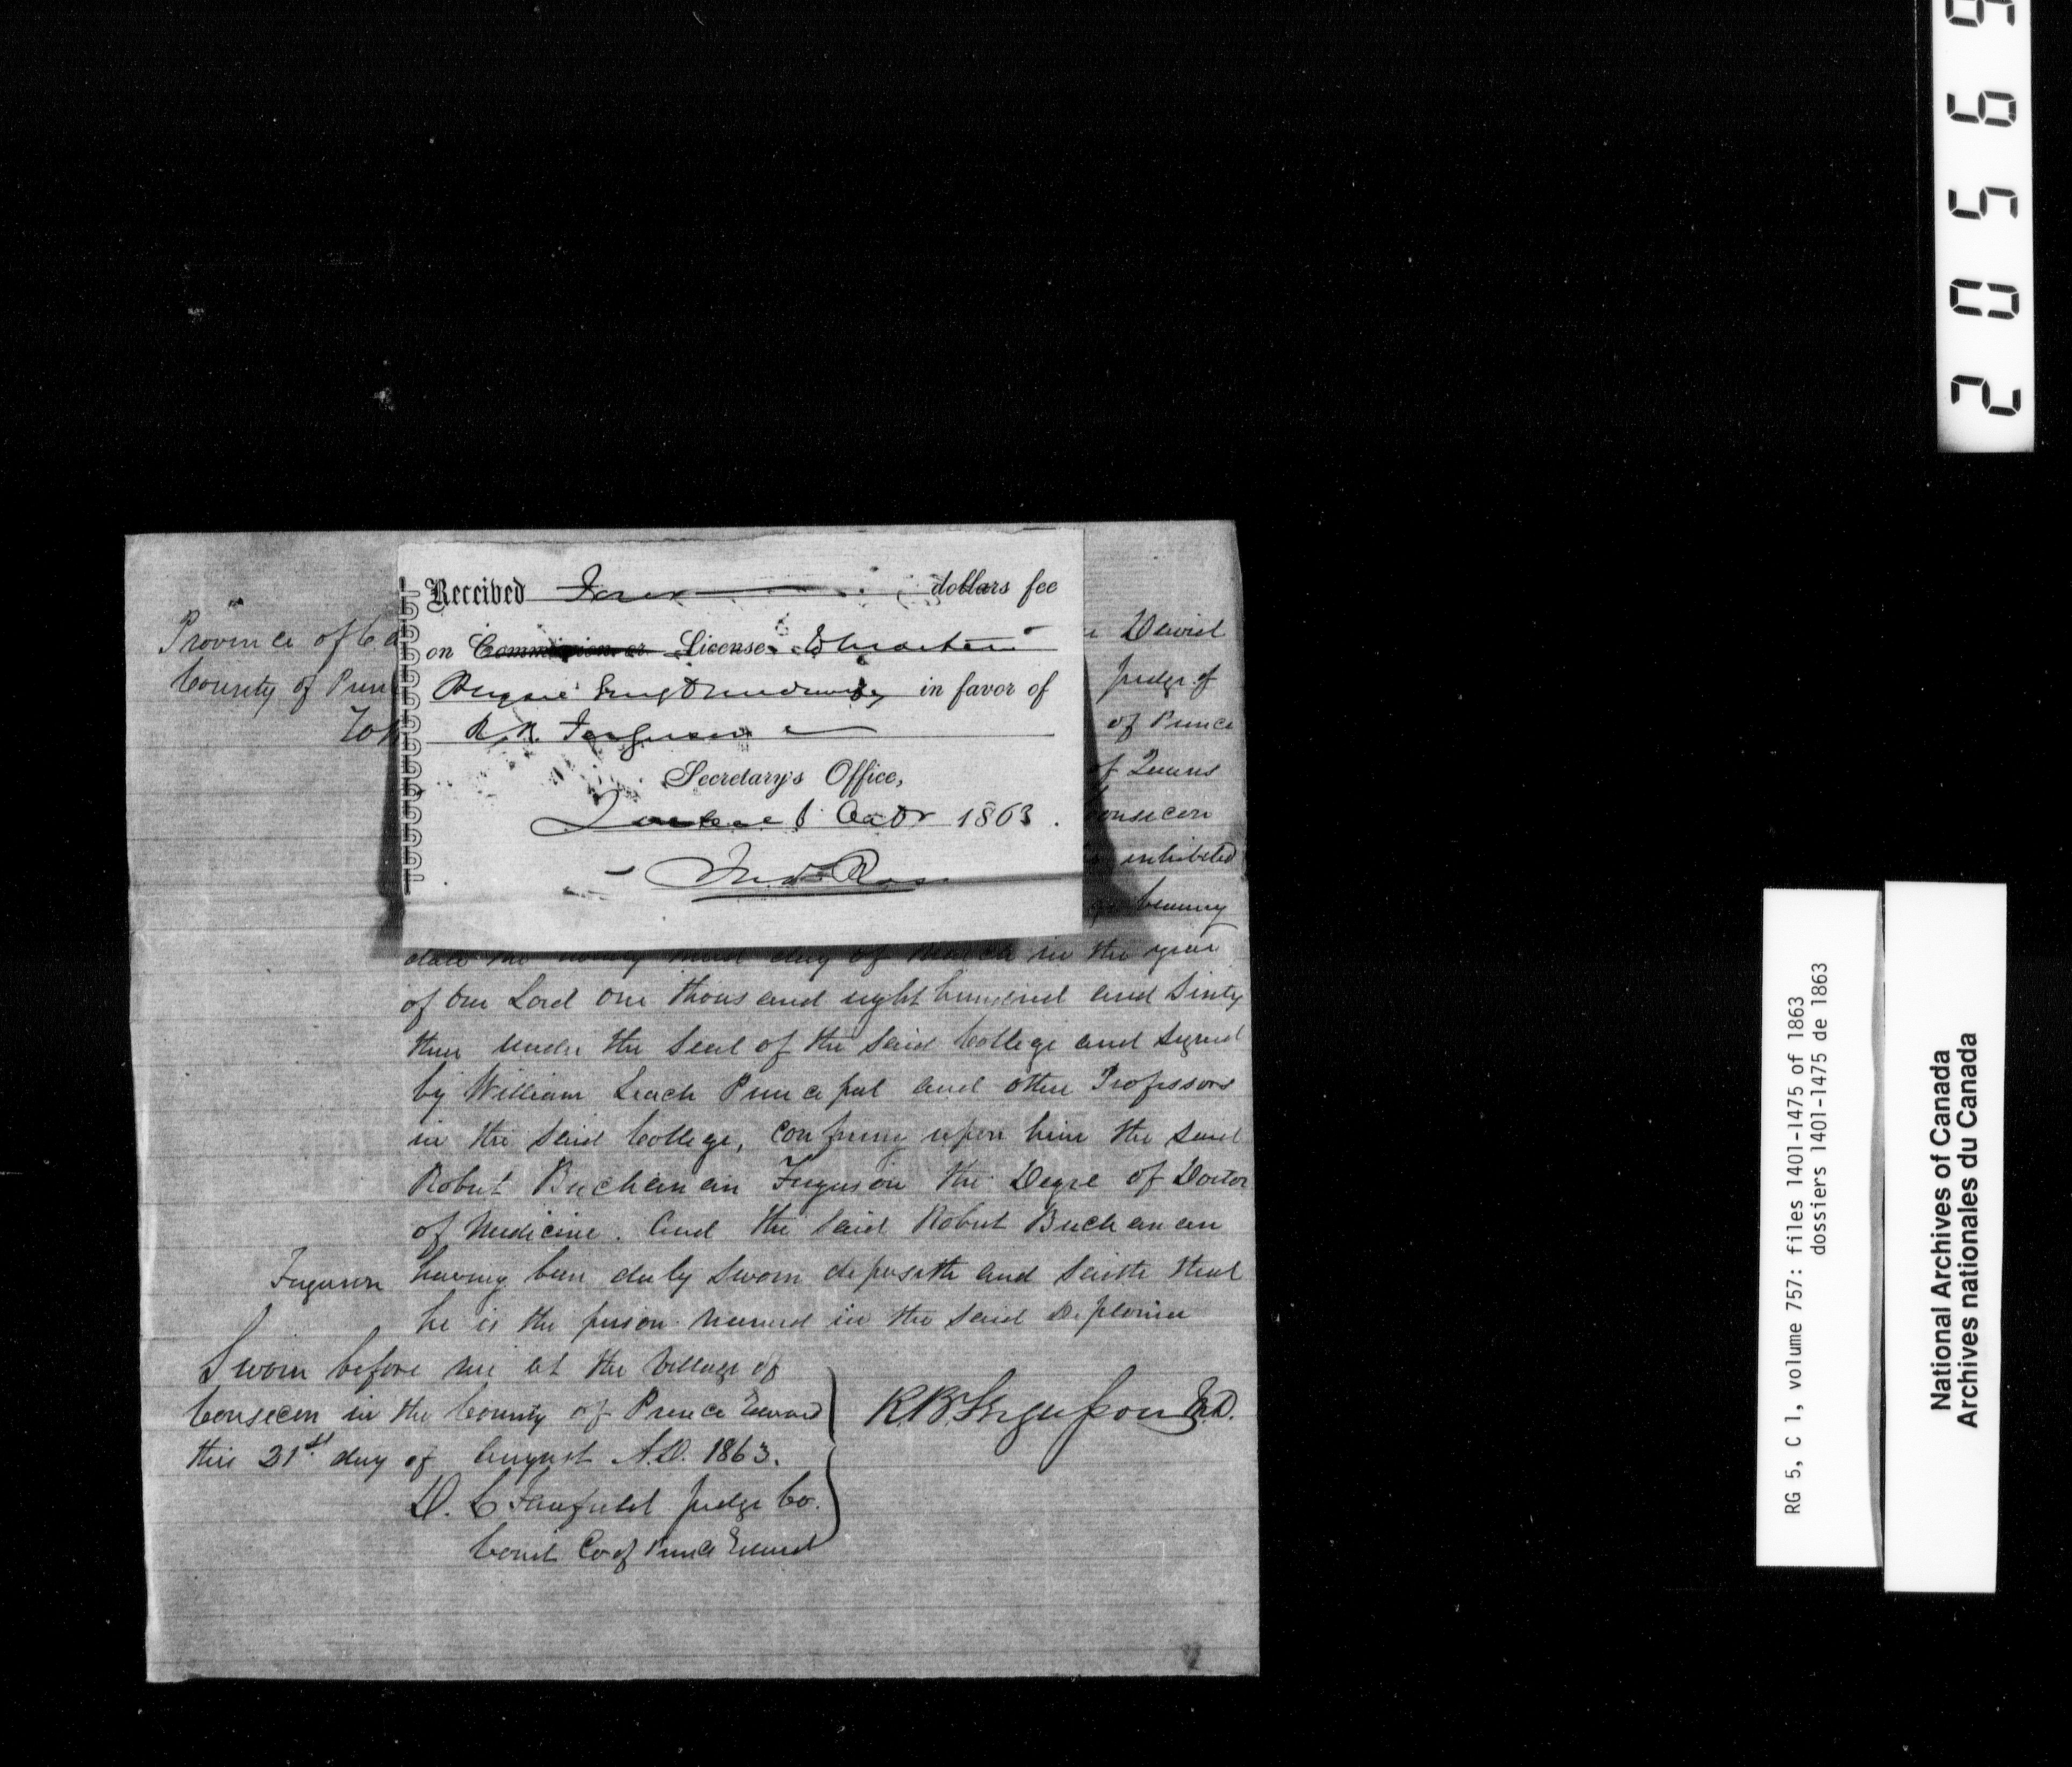 20569
Received Four dollars fee
on Commission or License to Practice
Physic Surg & Midwifery in favor of
R. B. Ferguson
Secretary's Office,
Quebec 1 Octr 1863.
Province of Ca
County of Prin
To
David
Judge of
of Prince
of Queens
Consecon
exhibited
bearing
date the day of March in the year
of Our Lord one thousand eight hundred and Sixty
three under the Seal of the said College and signed
by William Leach Principal and other Professors
in the said College, confering upon him the said
Robert Buchanan Ferguson the Degre of Doctor
of Medicine. And the said Robert Buchanan
Ferguson having been duly sworn deposeth and saith that
he is the person named in the said Diploma
Sworn before me at the Village of
Consecon in the County of Prince Edward
this 21st day of August A.D. 1863.
D. L Fairfield Judge Co.
Court Co of Prince Edward
R.B. Fergusson M.D.
RG 5, C 1, volume 757: files 1401-1475 of 1863
dossiers 1401-1475 de 1863
National Archives of Canada
Archives nationales du Canada